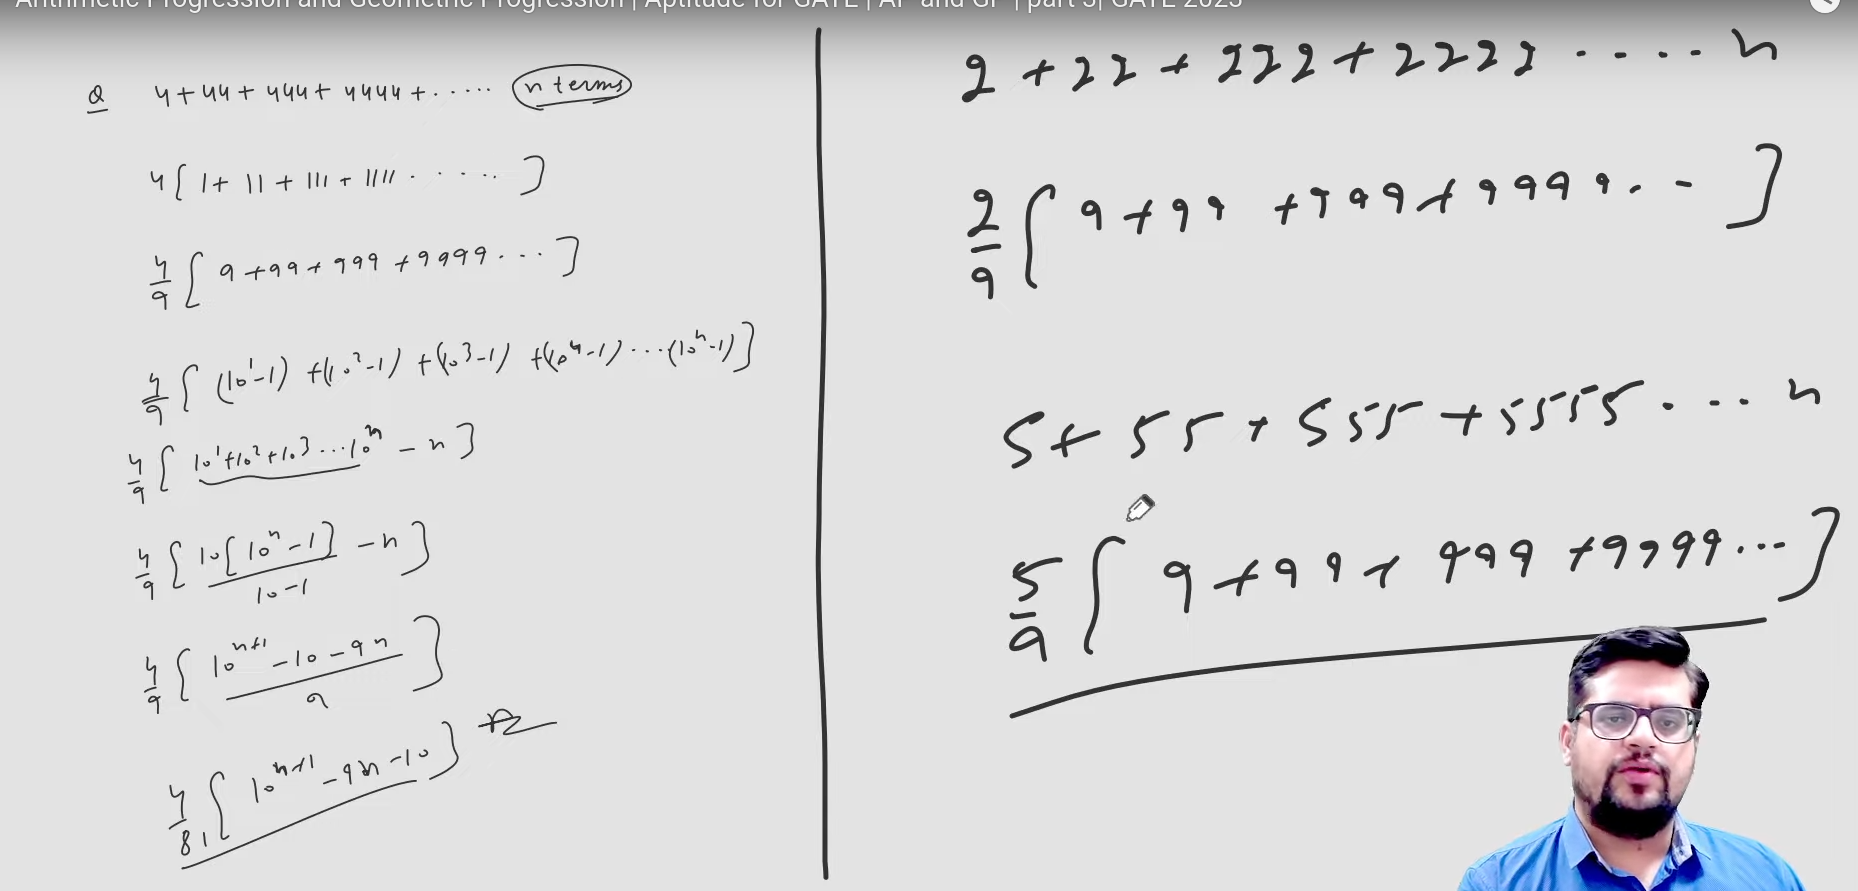 Arithmetic Progression and Geometric Progression | Aptitude for GATE | AP and GP | part 3| GATE 2023
Q 4+44+444+4444+..... n terms
4[1+11+111+1111.......]
4/9[9+99+999+9999....]
4/9[(10¹-1)+(10²-1)+(10³-1)+(10⁴-1)...(10ⁿ-1)]
4/9[10¹+10²+10³...10ⁿ-n]
4/9[10[10ⁿ-1]/10-1 -n]
4/9[10ⁿ⁺¹-10-9n/9]
4/81[10ⁿ⁺¹-9n-10]
2+22+222+2222.....n
2/9[9+99+999+9999..-]
5+55+555+5555....n
5/9[9+99+999+9999...]